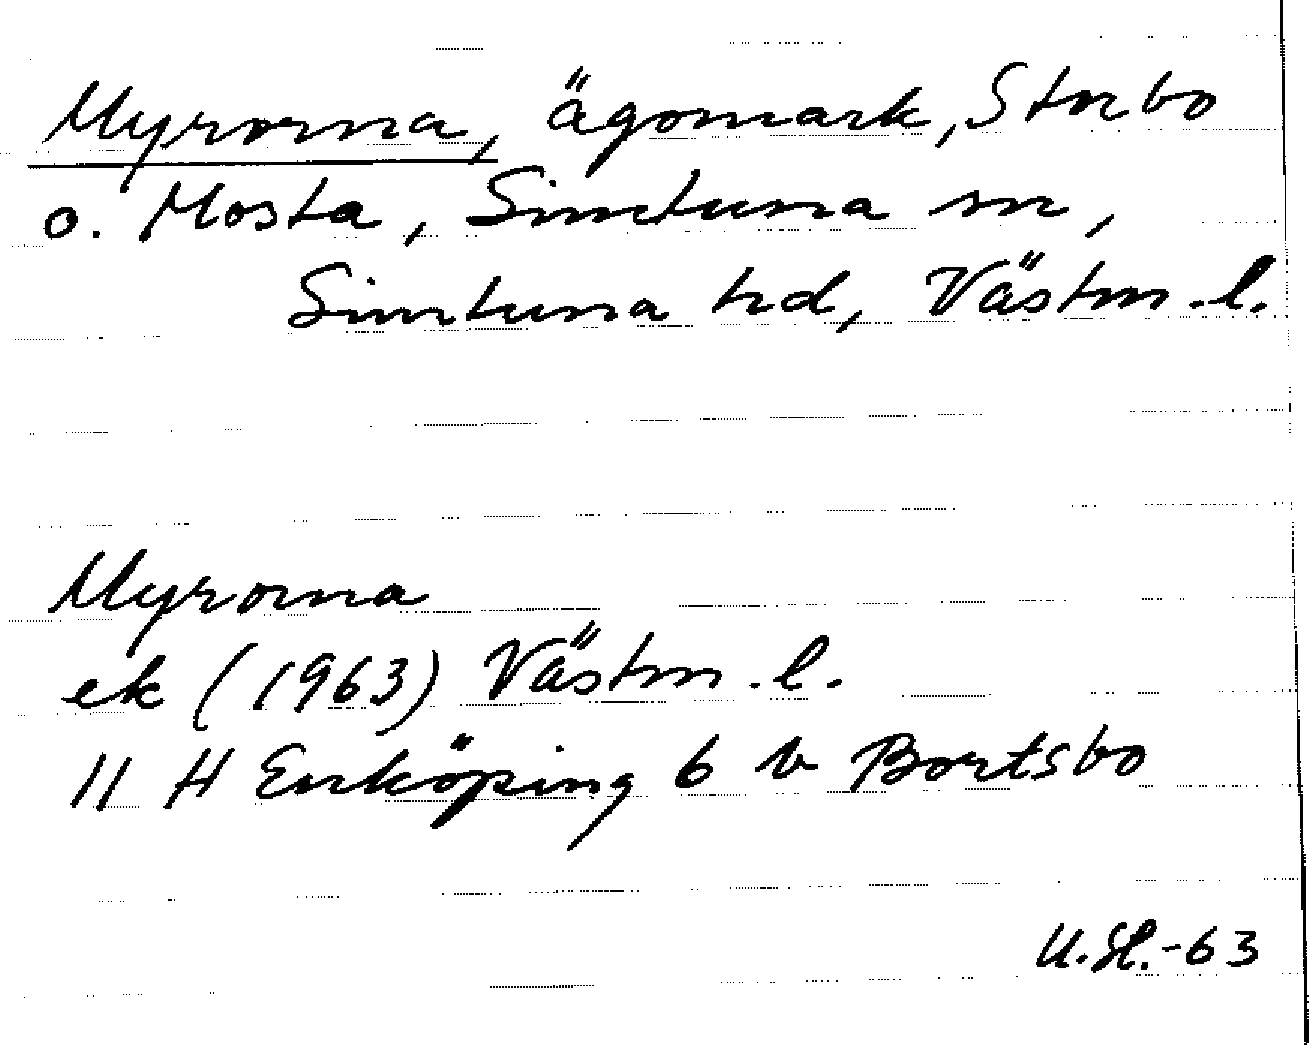 Myrorna, ägomark, Storbo
o. Mosta, Simtuna sn,
Simtuna hd, Västm. l.
Myrorna
ek (1963) Västm. l.
11 H Enköping 6 b Bortsbo
U.H.-63